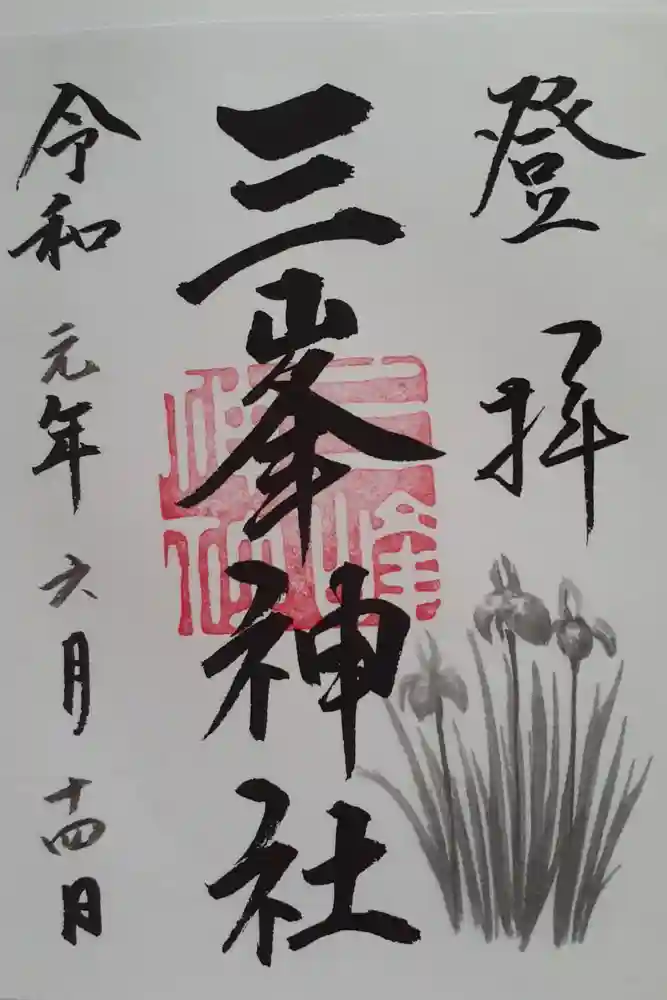 登拝
三峯神社
令和元年六月十四日